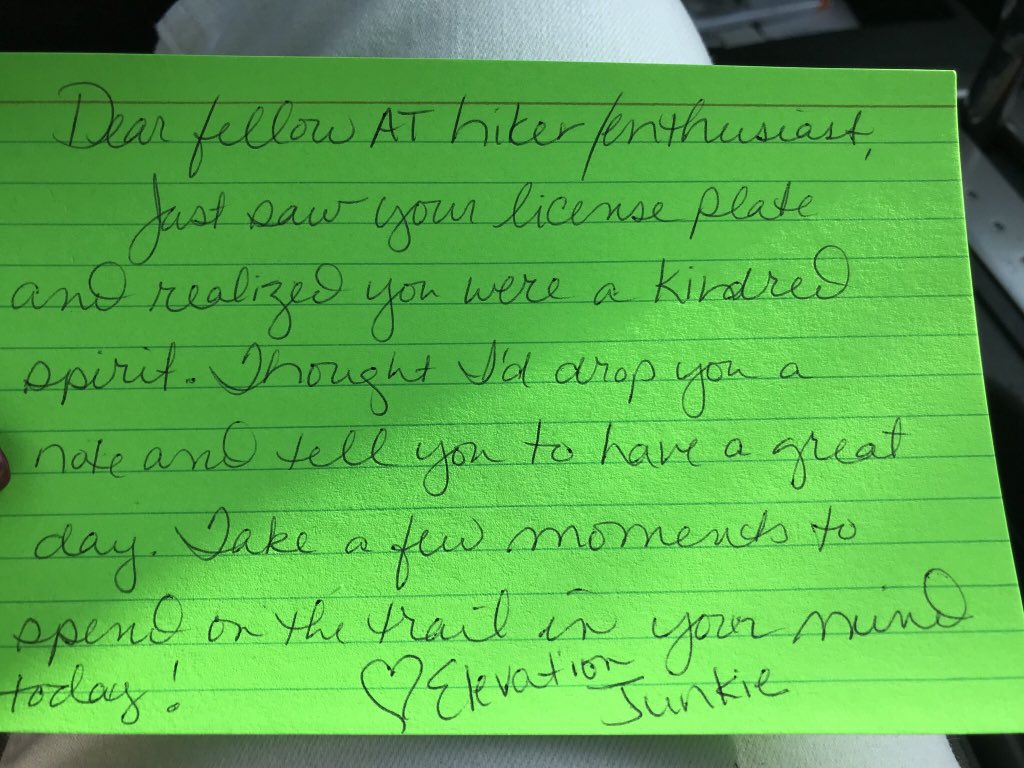 Dear fellow AT hiker/enthusiast,
Just saw your license plate
and realized you were a kindred
spirit. Thought I'd drop you a
note and tell you to have a great
day. Take a few moments to
spend on the trail in your mind
today! ♡ Elevation
Junkie